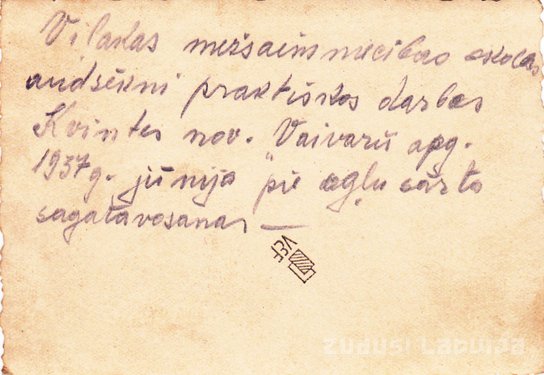 Viļakas mežsaimniecības skolas
audsēkni praktiskos darbos
Kvintes nov. Vaivaru apg.
1937g. jūnijā pie ogļu sārta
sagatavošanas —
VEF
zudusi Latvija